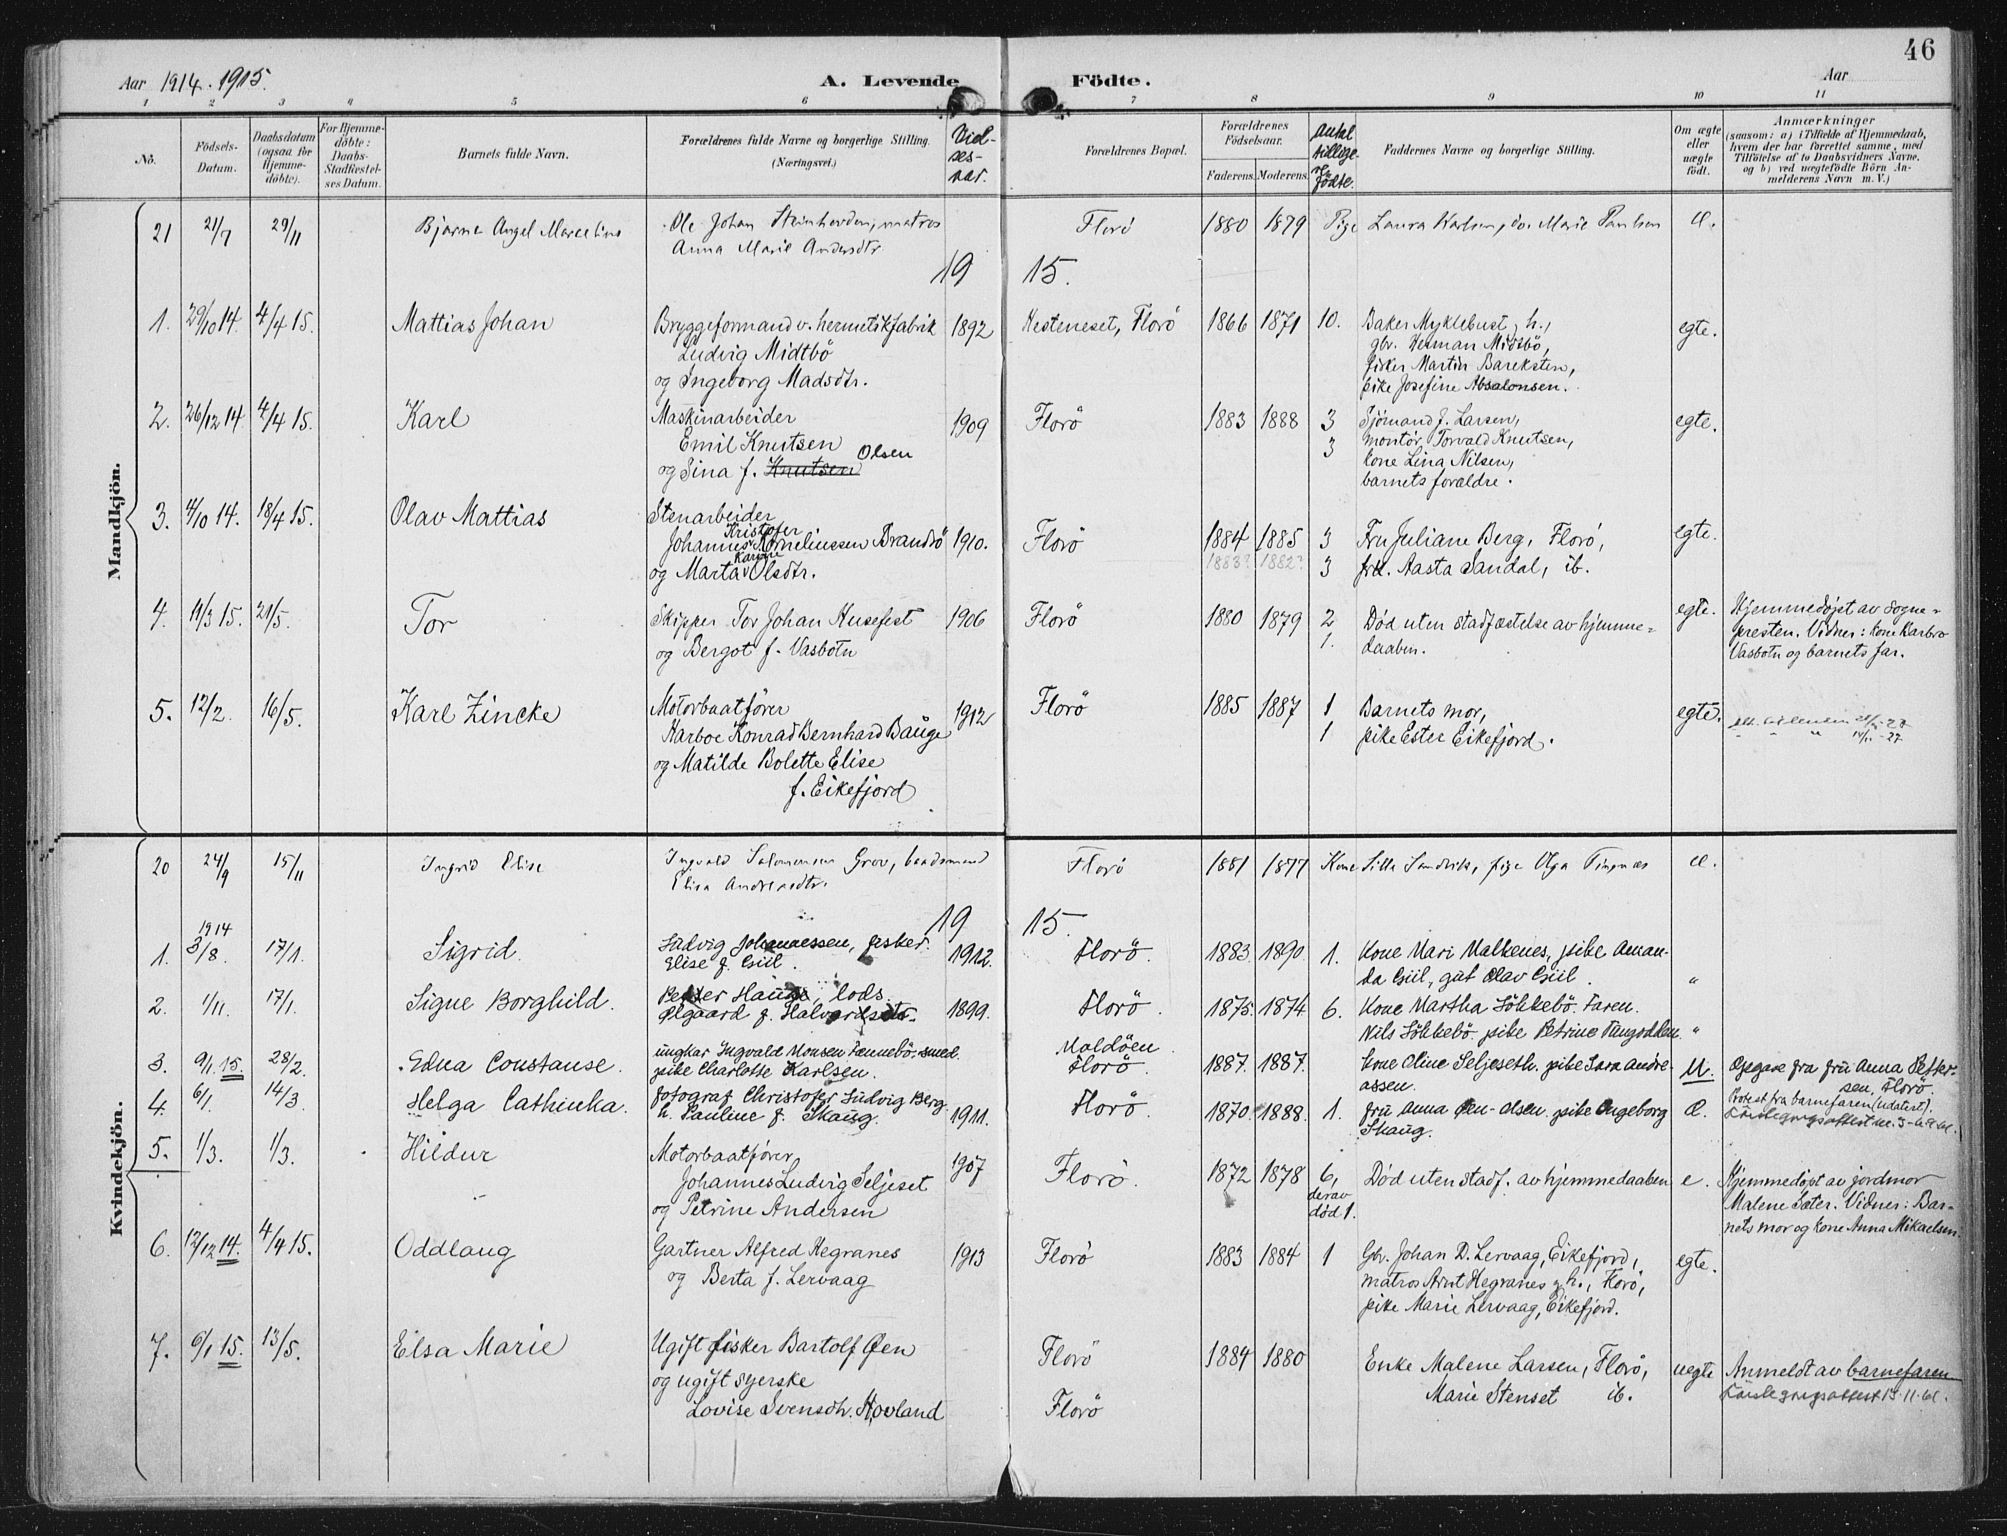 46
Aar 1914. 1915. A. Levende Födte. Aar
1 2 3 4 5 6 7 8 9 10 11
No. Födsels-Datum. Daabsdatum (ogsaa for Hjemme-döbte). For Hjemme-döbte: Daabs-Stadfæstel-ses Datum. Barnets fulde Navn. Forældrenes fulde Navne og borgerlige Stilling. (Næringsvei.) Viel-ses-aar. Forældrenes Bopæl. Forældrenes Födselsaar. Faderens. Moderens. Antal tidlige-re fødte. Faddernes Navne og borgerlige Stilling. Om ægte eller uægte födt. Anmærkninger (saasom: a) i Tilfælde af Hjemmedaab, hvem der har forrettet samme, med Tilföielse af to Daabsvidners Navne, og b) ved uægtefödte Börn An-melderens Navn m. V.)
Mandkjön.
21 21/7 29/11 Bjarne Angel Marcelius Ole Johan Steinhovden, matros Florö 1880 1879 Pige Laura Karlsen, do. Marie Paulsen e.
Anna Marie Andersdtr.
19 15.
1. 29/10 14. 4/4 15. Mattias Johan Bryggeformand v. hermetikfabrik 1892 Hesteneset, Florö 1866 1871 10. Baker Myklebust, h., egte.
Ludvig Midtbö gbr. Herman Midtbö,
og Ingeborg Madsdtr. fisker Martin Bareksten,
pike Josefine Absalonsen.
2. 26/12 14. 4/4 15. Karl Maskinarbeider 1909 Florö 1883 1888 3 Sjömand J. Larsen, egte.
Emil Knutsen 3 montör Torvald Knutsen,
og Sina f. Knutsen Olsen kone Lina Nilsen,
barnets forældre.
3. 4/10 14. 18/4 15. Olav Mattias Stenarbeider
Kristofer
Johannes Korneliussen Brandsö 1910. Florö 1884 1885 3 Fru Juliane Berg, Florö, egte.
Karine
og Marta Olsdtr. 1883? 1882? 3 frk. Aasta Sandal, ib.
4. 11/3 15. 21/5. Tor Skipper Tor Johan Husefest 1906 Florö 1880 1879 2 Död uten stadfæstelse av hjemme- egte. Hjemmedöpt av sogne-
og Bergot f. Vasbotn 1. daaben. presten. Vidner: kone Barbro
Vasbotn og barnets far.
5. 12/2. 16/5. Karl Zincke Motorbaatförer 1912 Florö 1885 1887 1 Barnets mor, egte.
Harboe Konrad Bernhard Bauge 1 pike Ester Eikefjord.
og Matilde Bolette Elise
f. Eikefjord
Kvindekjön.
20 24/9 15/11 Ingrid Elise Ingvald Salomonsen Grov, baadsmand Florö 1881 1877 Kone Silla Sandvik, pige Olga Tingnæs e.
Elisa Andreasdtr.
19 15.
1914
1. 3/8. 17/1. Sigrid. Ludvig Johannessen, fisker. 1912. Florö. 1883. 1890. 1. Kone Mari Malkenes, pike Aman-
Elise f. Güil. da Güil, gut Olav Güil. "
2. 1/11. 17/1. Signe Borghild. Petter Hauge, lods 1899. Florö. 1875. 1874 6. Kone Martha Lökkebö. Faren.
Ølgaard f. Halvardsdtr. Nils Lökkebö. pike Petrine Tungodden. "
3. 9/1. 15. 28/2. Edna Constanse. ungkar Ingvald Monsen Tennebö, smed. Maldöen 1887. 1887. Kone Oline Seljeseth. pike Sara Andre- U. Opgave fra frü Anna Petter-
pike Charlotte Karlsen. Florö. assen. sen, Florö.
4. 6/1. 14/3. Helga Cathinka. fotograf Christofer Ludvig Berg 1911. Florö. 1870. 1888. 1. frü Anna Øen-Olsen. pike Ingeborg e. Protest fra barnefaren (udatert).
h. Pauline f. Skaug. Skaug.
5. 1/3. 1/3. Hildur Motorbaatförer 1907 Florö. 1872 1878 6, Död uten stadf. av hjemmedaaben e. Hjemmedöpt av jordmor
Johannes Ludvig Seljeset derav Malene Sæter. Vidner: Bar-
og Petrine Andersen död 1. nets mor og kone Anna Mikaelsen.
6. 12/12 14. 4/4 15. Oddlaug Gartner Alfred Hegranes 1913 Florö 1883 1884 1 Gbr. Johan D. Lervaag, Eikefjord, egte.
og Berta f. Lervaag matros Arnt Hegranes & h., Florö,
pike Marie Lervaag, Eikefjord.
7. 6/1 15. 13/5. Elsa Marie Ugift fisker Bartolf Øen Florö 1884 1880 Enke Malene Larsen, Florö, uegte Anmeldt av barnefaren
og ugift syerske Marie Stenset ib. Födselsgrunnattest 13-11-61.
Lovise Svensdtr. Hovland Florö